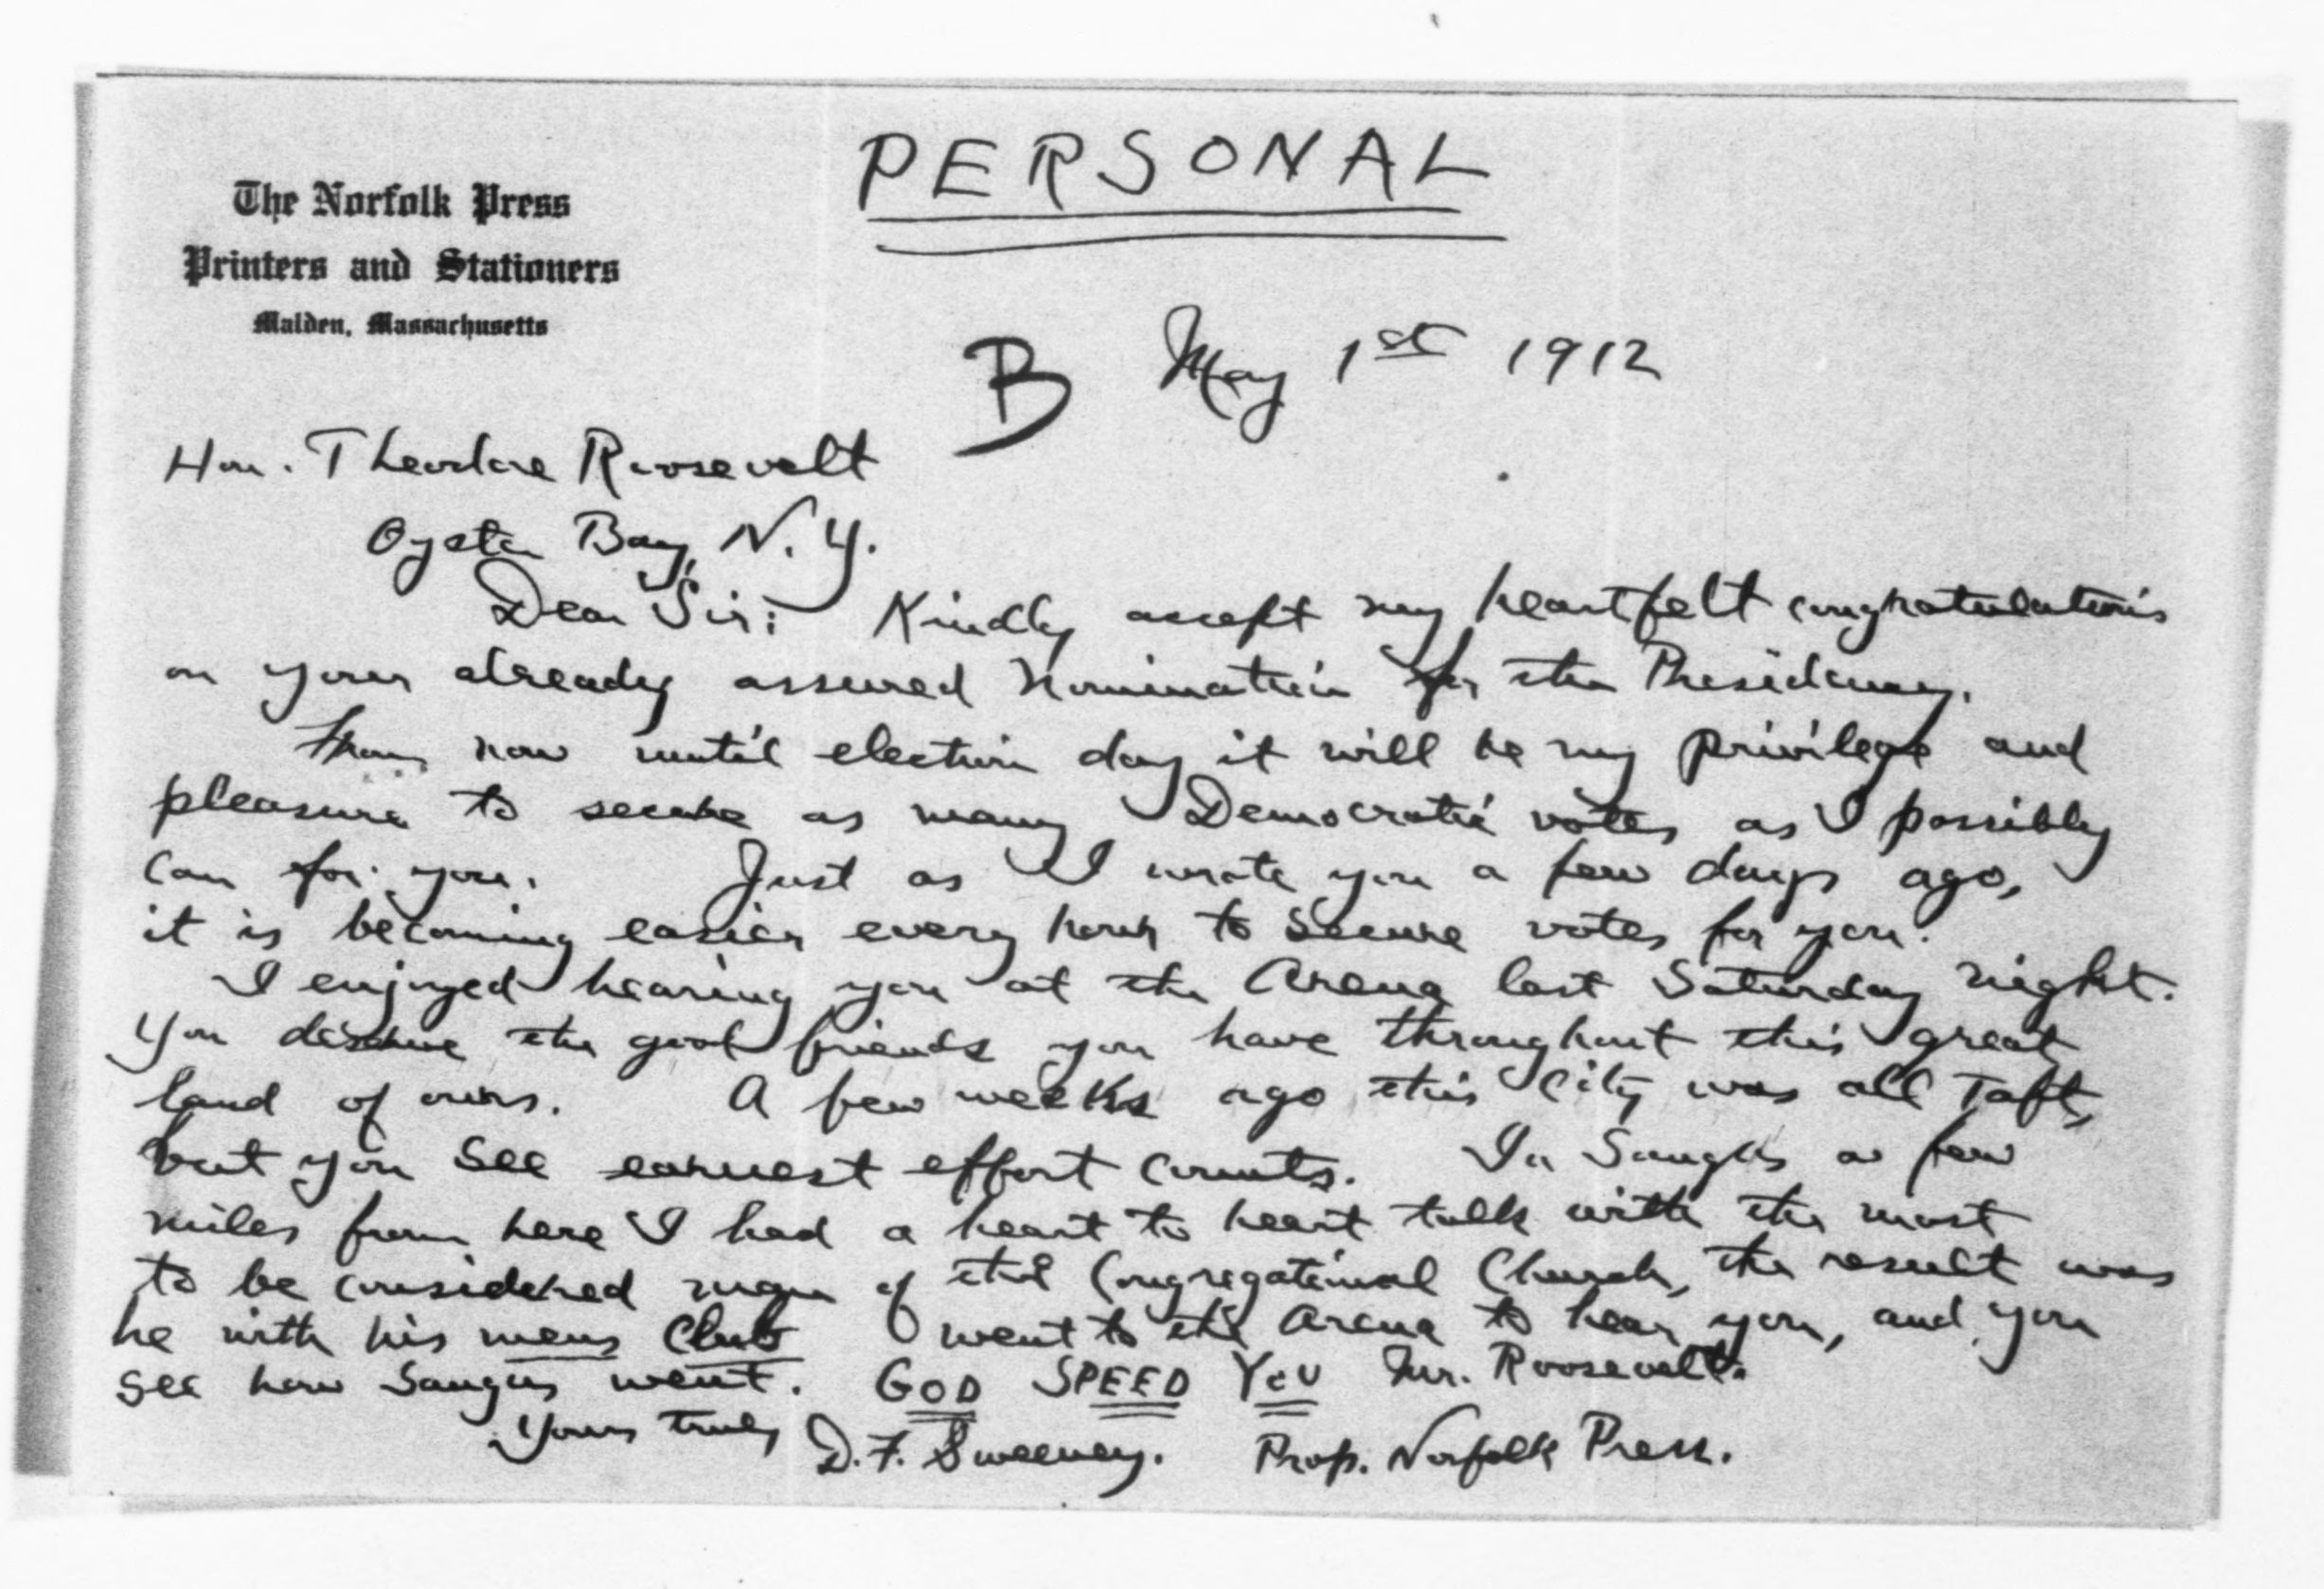 PERSONAL
The Norfolk Press
Printers and Stationers
Malden, Massachusetts
B May 1st 1912
Hon. Theodore Roosevelt
Oyster Bay, N. Y.
Dear Sir: Kindly accept my heartfelt congratulations
on your already assured nomination for the Presidency.
From now until election day it will be my privilege and
pleasure to secure as many Democratic votes as I possibly
can for you. Just as I wrote you a few days ago,
it is becoming easier every hour to secure votes for you.
I enjoyed hearing you at the Arena last Saturday night.
You deserve the good friends you have throughout this great
land of ours. A few weeks ago this City was all Taft,
but you see earnest effort counts. In Saugus a few
miles from here I had a heart to heart talk with the most
to be considered man of the Congregational Church, the result was
he with his mens Club went to the Arena to hear you, and you
see how Saugus went. GOD SPEED YOU Mr. Roosevelt.
Yours truly D. F. Sweeney. Prop. Norfolk Press.